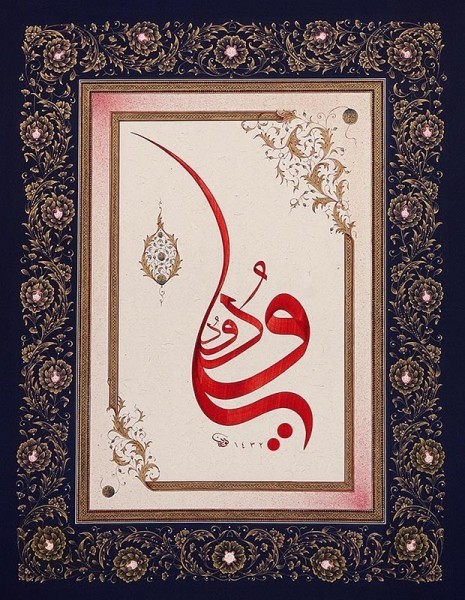 يا ودود
١٤٣٢